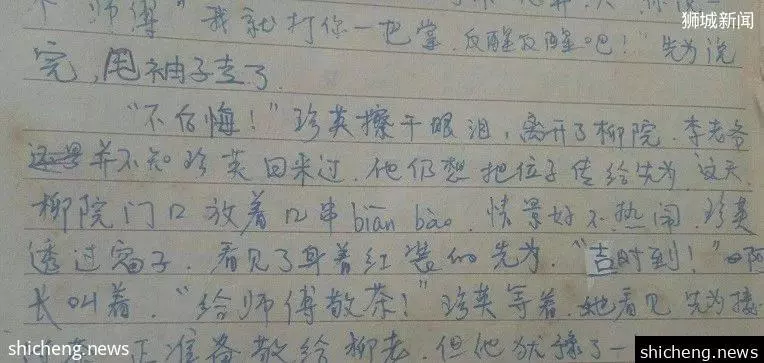 狮城新闻
师傅"我就打你一巴掌,反醒反醒吧!"先为说
完,甩袖子走了.
"不后悔!"珍英擦干眼泪,离开了柳院.李老爷
并不知珍英回来过.他仍想把位子传给先为.这天,
柳院门口放着几串biān bào.情景好不热闹.珍英
透过窗子,看见了身着红装的先为."吉时到!"
长叫着."给师傅敬茶!"珍英等着.她看见先为接
正准备敬给柳老.但他犹豫了一
shicheng.news
shicheng.news